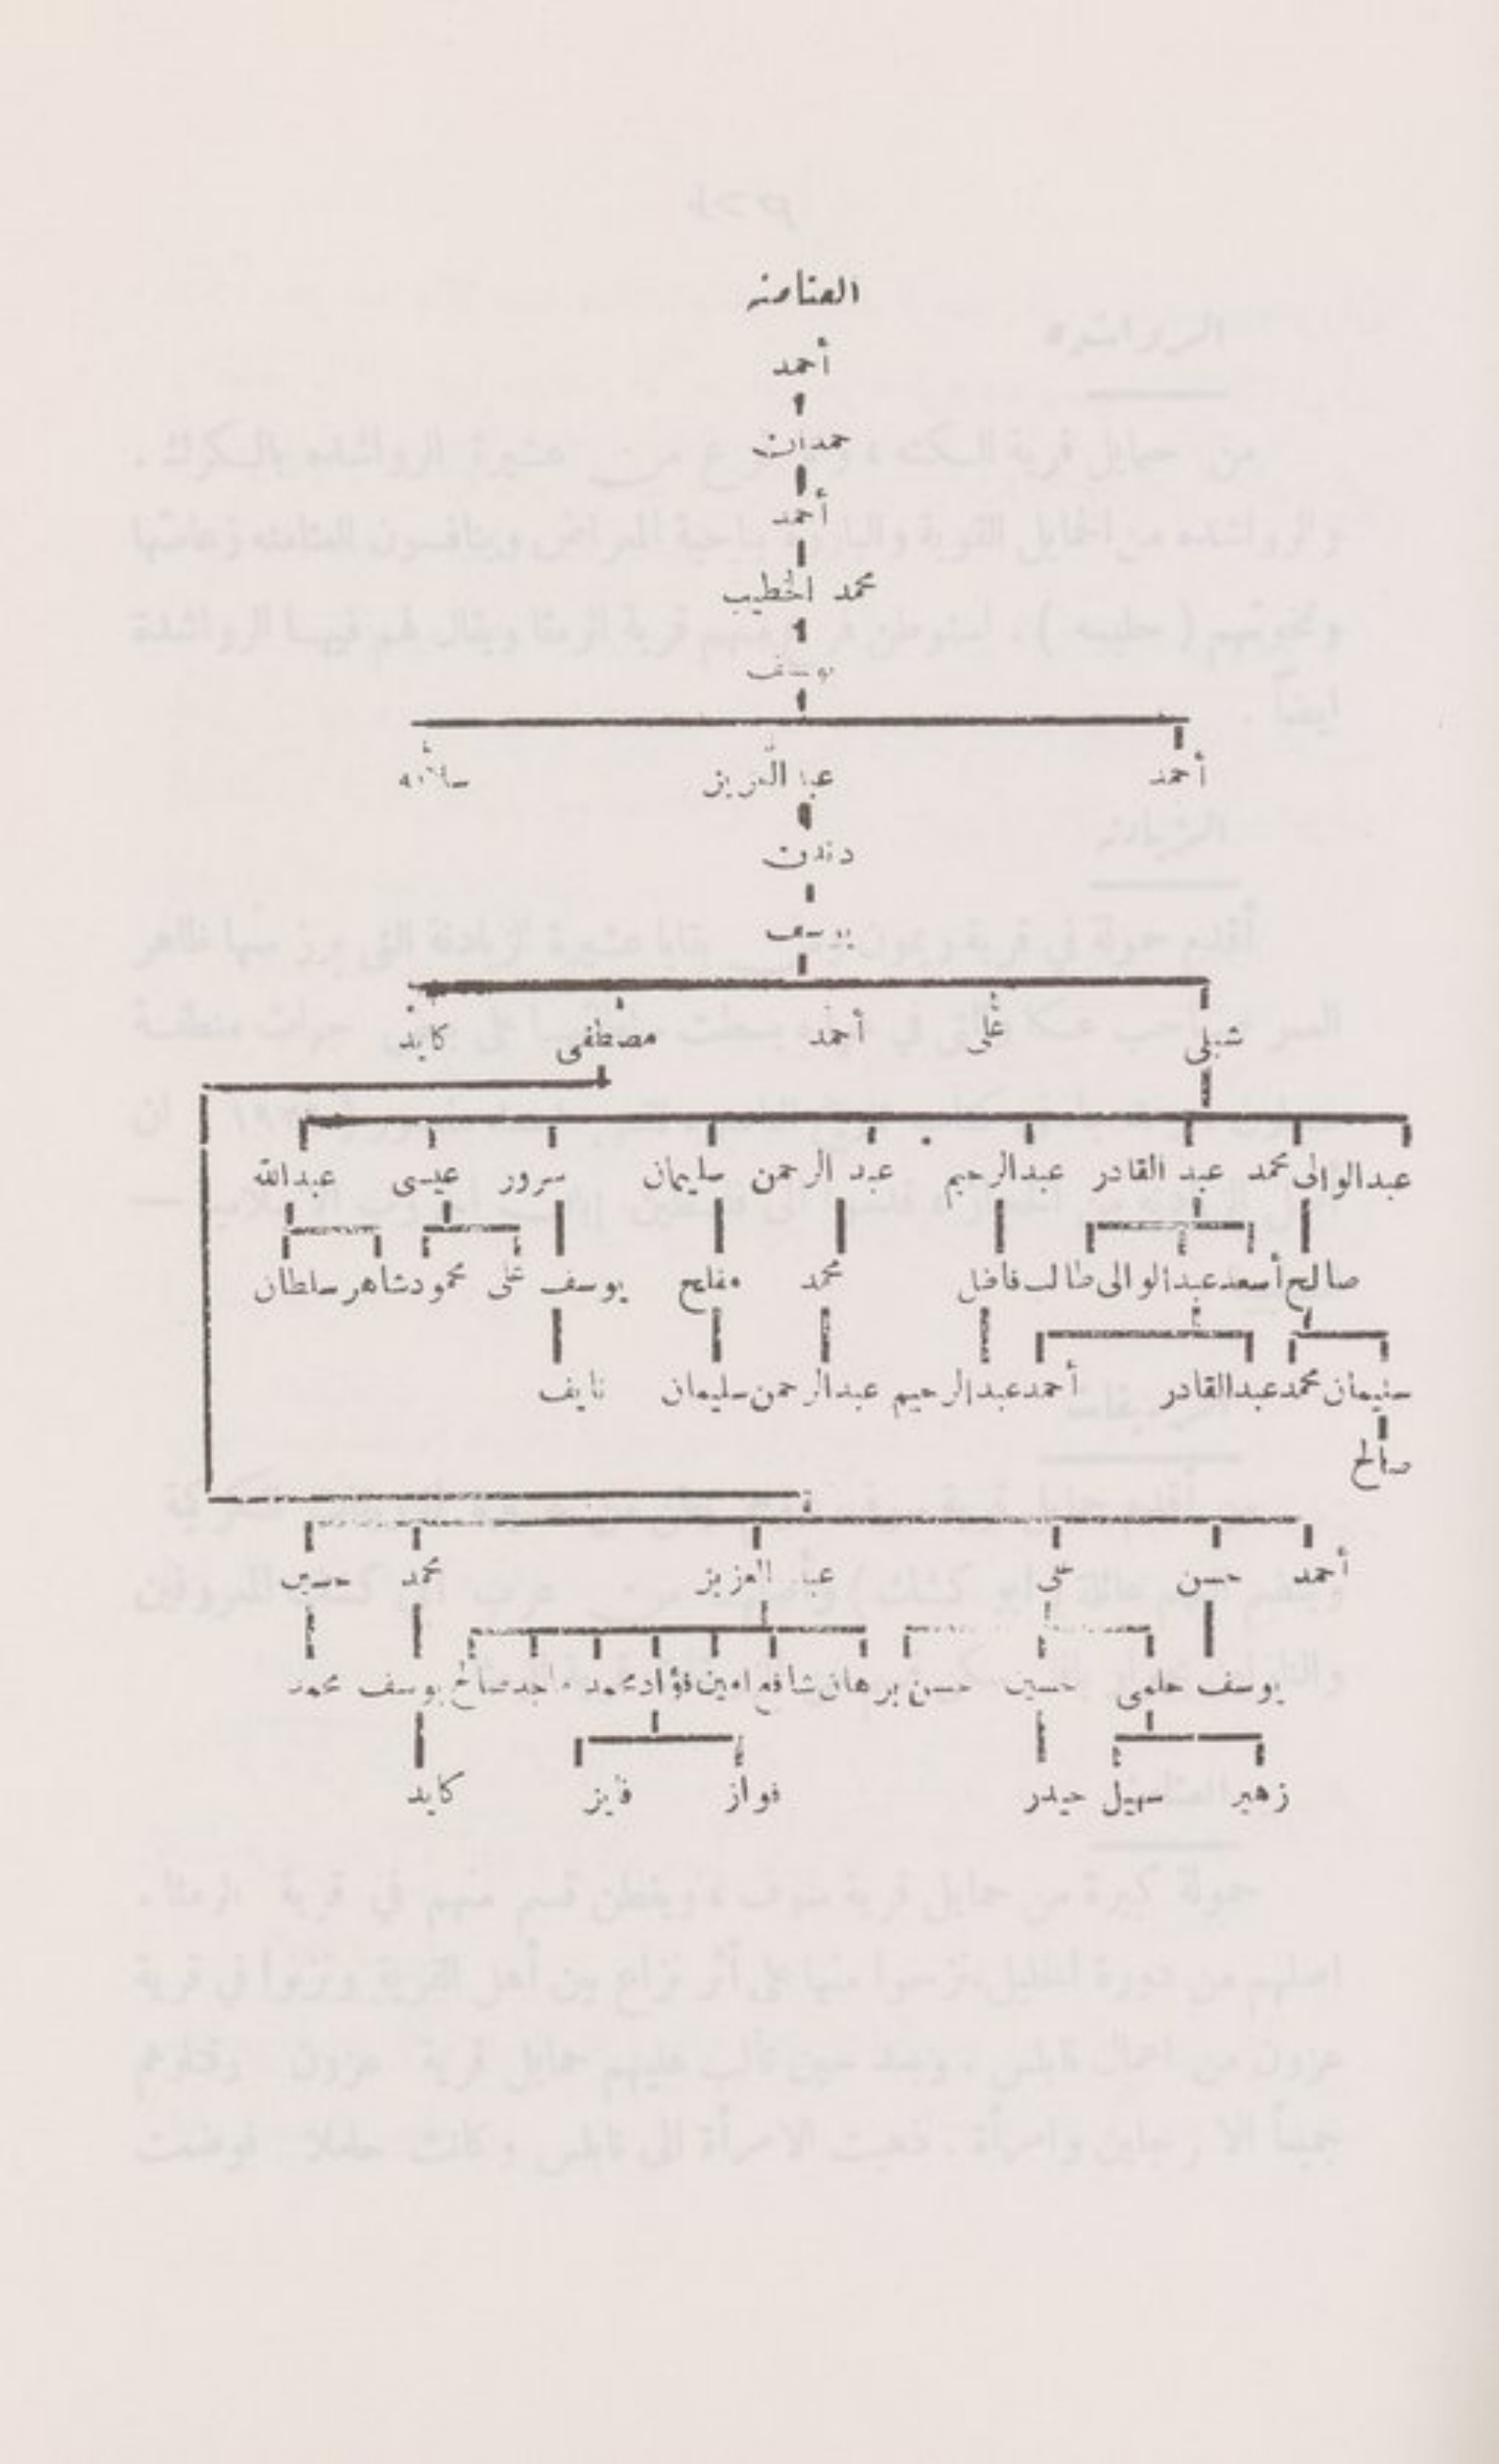 العتامنه
أحمد
حمدان
أحمد
محمد الخطيب
يوسف
أحمد عبد العزيز سلامه
دندن
يوسف
شبلى على أحمد مصطفى كايد
عبدالوالى محمد عبد القادر عبدالرحيم عبد الرحمن سليمان سرور عيسى عبدالله
صالح أسعد عبدالوالى طالب فاضل محمد مفلح يوسف على محمود شاهر سلطان
سليمان محمد عبدالقادر أحمد عبدالرحيم عبدالرحمن سليمان نايف
صالح
أحمد حسن على عبد العزيز محمد حسين
يوسف حلمى حسين حسن برهان شافع امين فؤاد محمد ماجد صالح يوسف محمد
زهير سهيل حيدر فواز فايز كايد